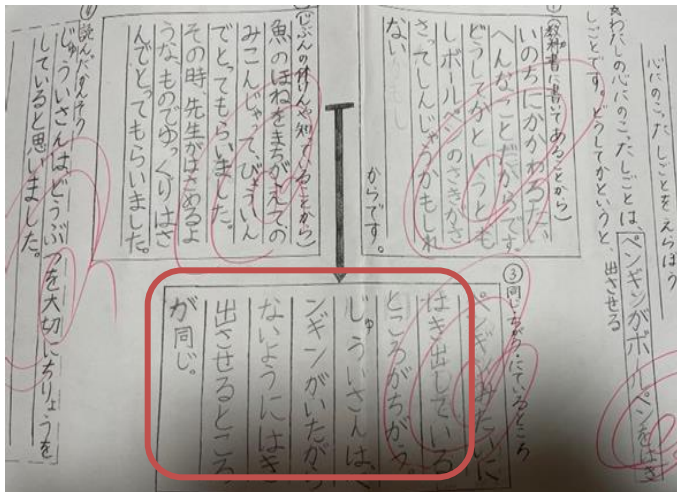 心にのこったしごとをえらぼう
わたしの心にのこったしごとは、ペンギンがボールペンをはき
出させる
しごとです。どうしてかというと、
①(教科書に書いてあることから)
いのちにかかわるたい
へんなことだからです。
どうしてかというとも
しボールペンのさきがさ
さってしんじゃうかもしれ
ない
からです。
(じぶんの体けんや知っていることから)
魚のほねをまちがえての
みこんじゃってびょういん
でとってもらいました。
その時、先生がはさめるよ
うなものでゆっくりはさ
んでとってもらいました。
③同じ・ちがう・にているところ
ペンギンみたいに
はき出している
ところがちがう。
じゅういさんは、ペ
ンギンがいたがら
ないようにはき
出させるところ
が同じ。
④読んだかんそう
じゅういさんはどうぶつを大切にちりょうを
していると思いました。